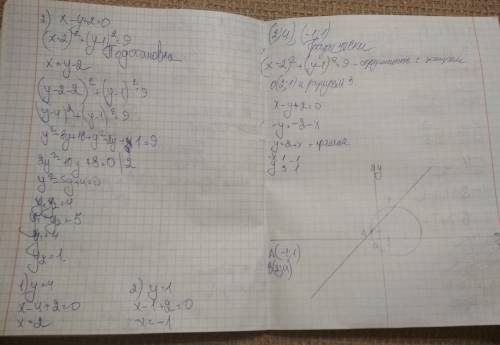 2) x-y+2=0
(x-2)²+(y-1)²=9
Подстановка
x=y-2
(y-2-2)²+(y-1)²=9
(y-4)²+(y-1)²=9
y²-8y+16+y²-2y+1=9
2y²-10y+8=0 | 2
y²-5y+4=0
y₁y₂=4
y₁+y₂=5
y₁=4
y₂=1
1) y=4
x-4+2=0
x=2
2) y=1
x-1+2=0
x=-1
(2;4) (-1;1)
Графически
(x-2)²+(y-1)²=9 - окружность с центром
O(2;1) и радиусом 3.
x-y+2=0
-y=-2-x
y=2+x - прямая
x 1 -1
y 3 1
y
A(-1;1)
B(2;4)